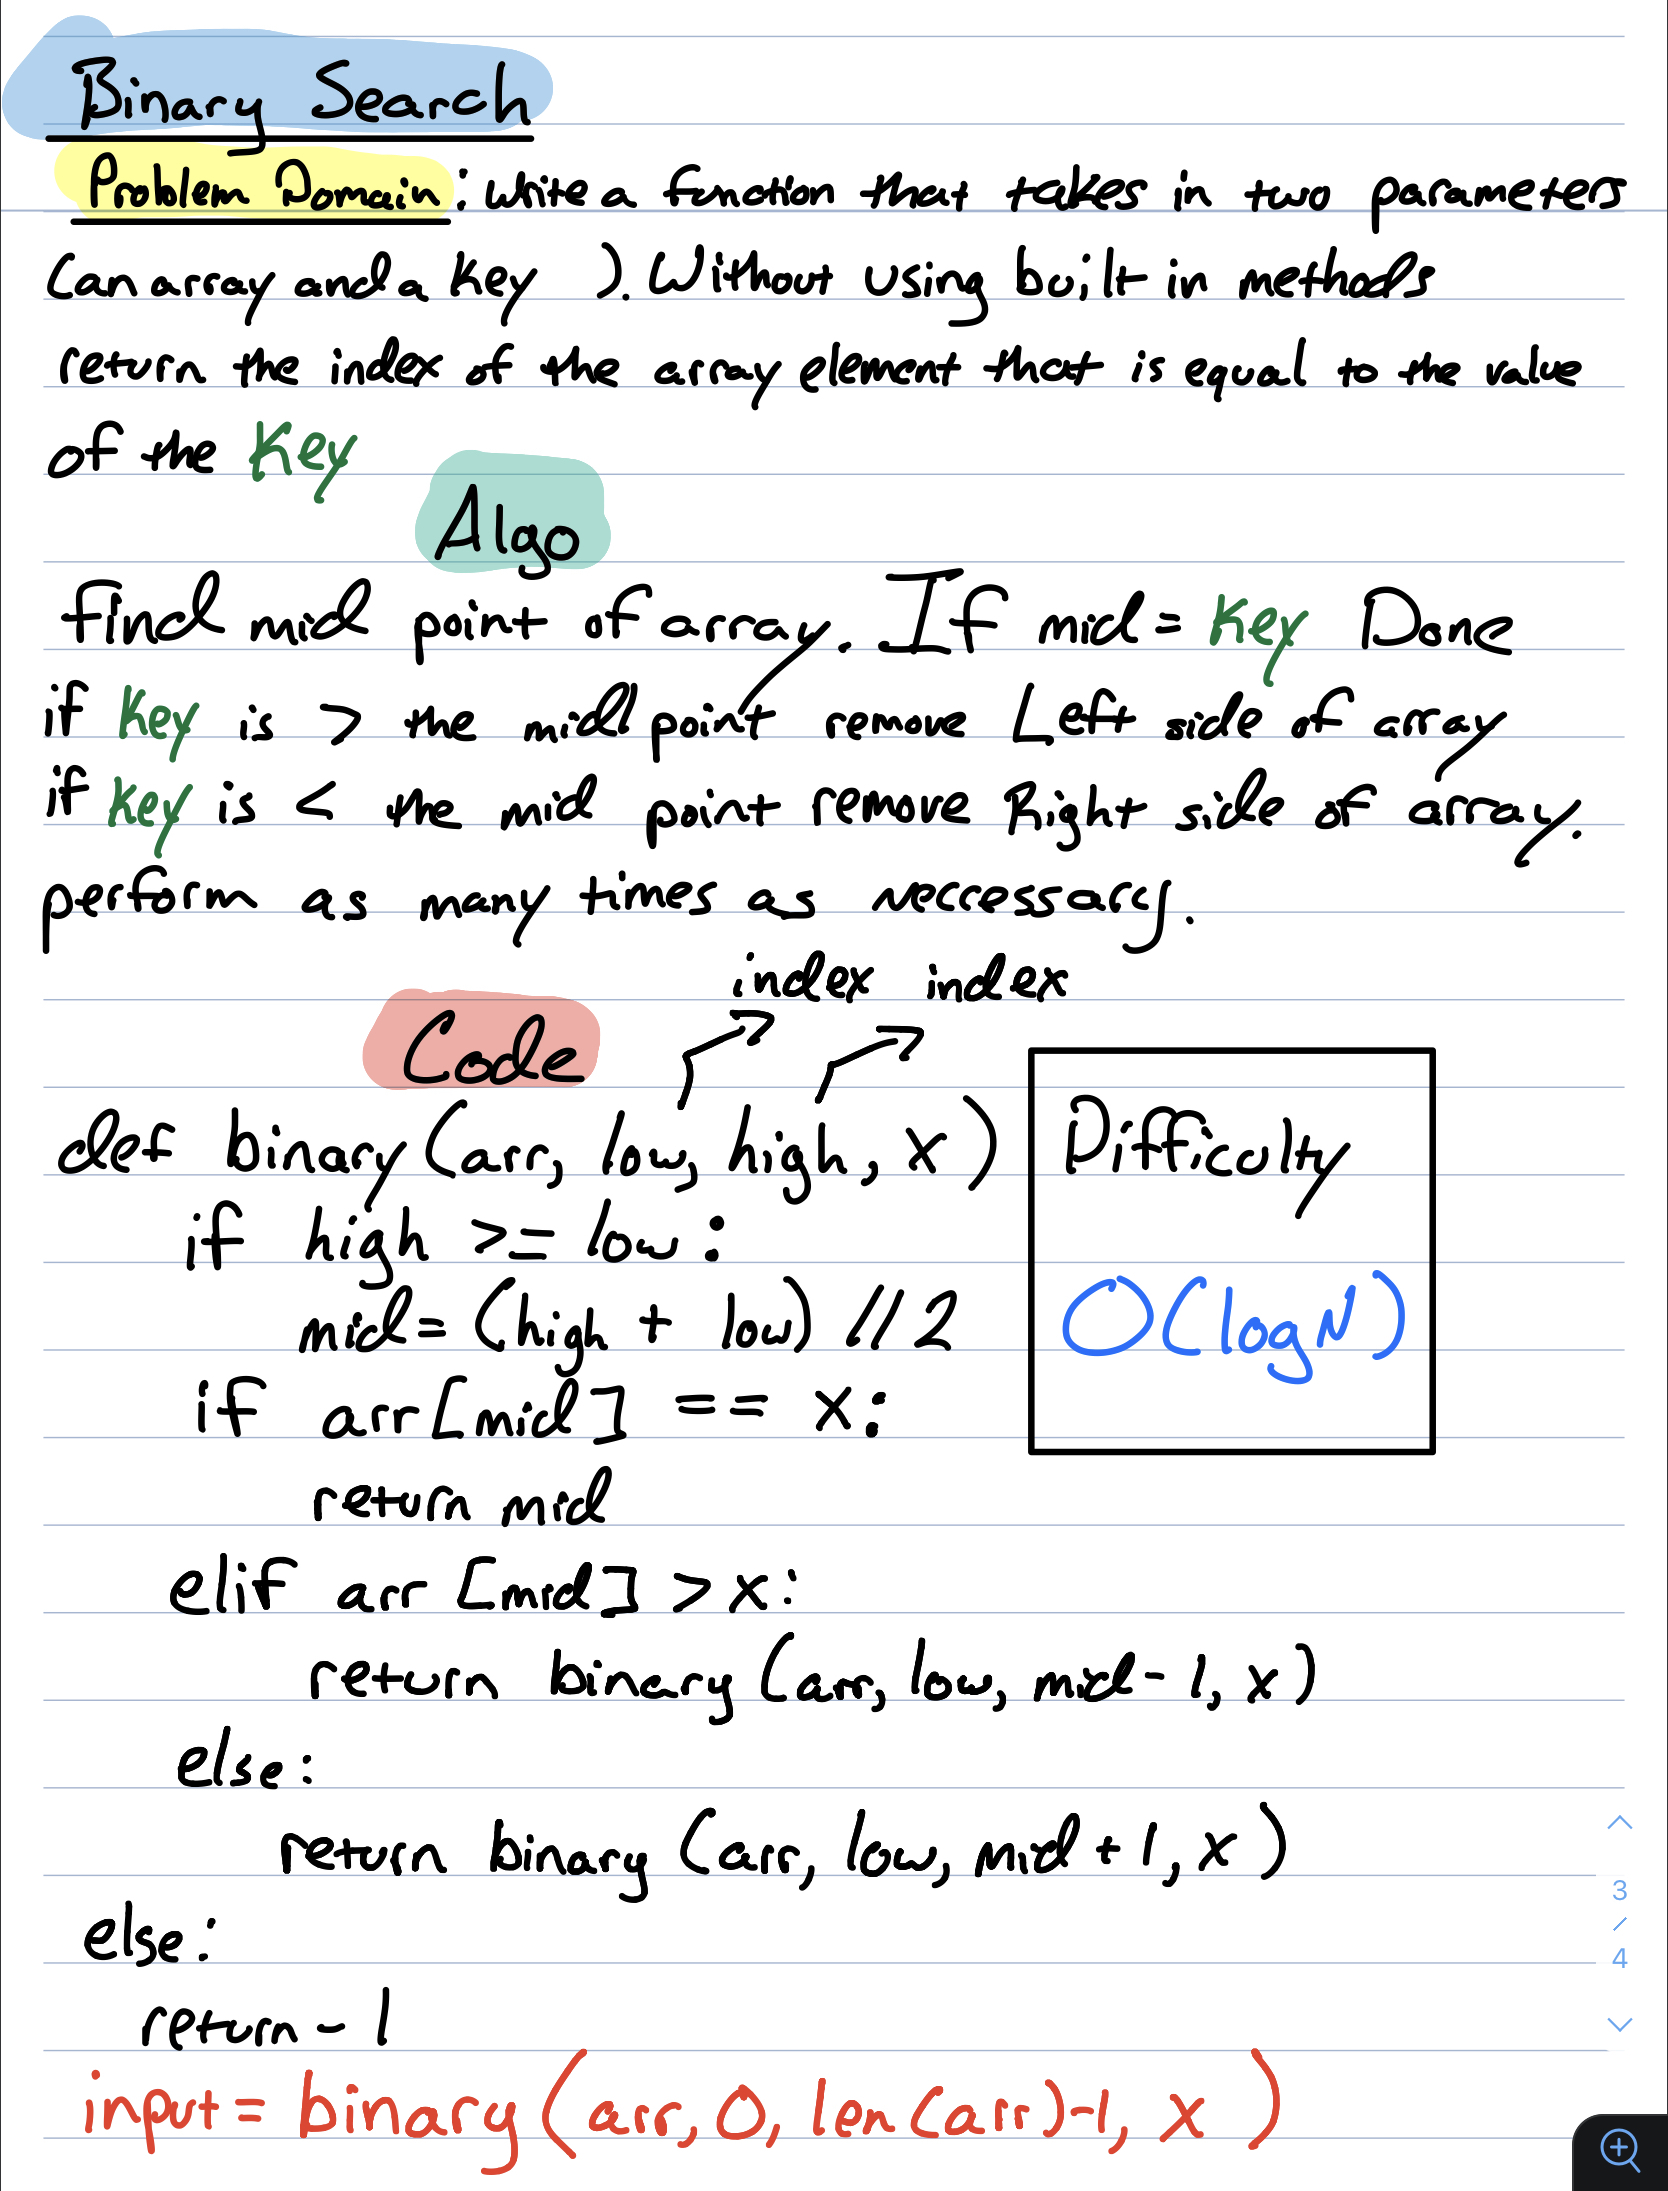 Binary Search
Problem Domain: write a function that takes in two parameters
(an array and a key ). Without using built in methods
return the index of the array element that is equal to the value
of the Key
Algo
find mid point of array. If mid = key Done
if key is > the mid point remove Left side of array
if key is < the mid point remove Right side of array.
perform as many times as neccessary.
index index
Code
def binary (arr, low, high, x)
Difficulty
if high >= low:
mid = (high + low) // 2
O(logN)
if arr [mid] == x:
return mid
elif arr [mid] > x:
return binary (arr, low, mid - 1, x)
else:
return binary (arr, low, mid + 1, x)
else:
return - 1
input = binary (arr, 0, len(arr)-1, x )
3
/
4